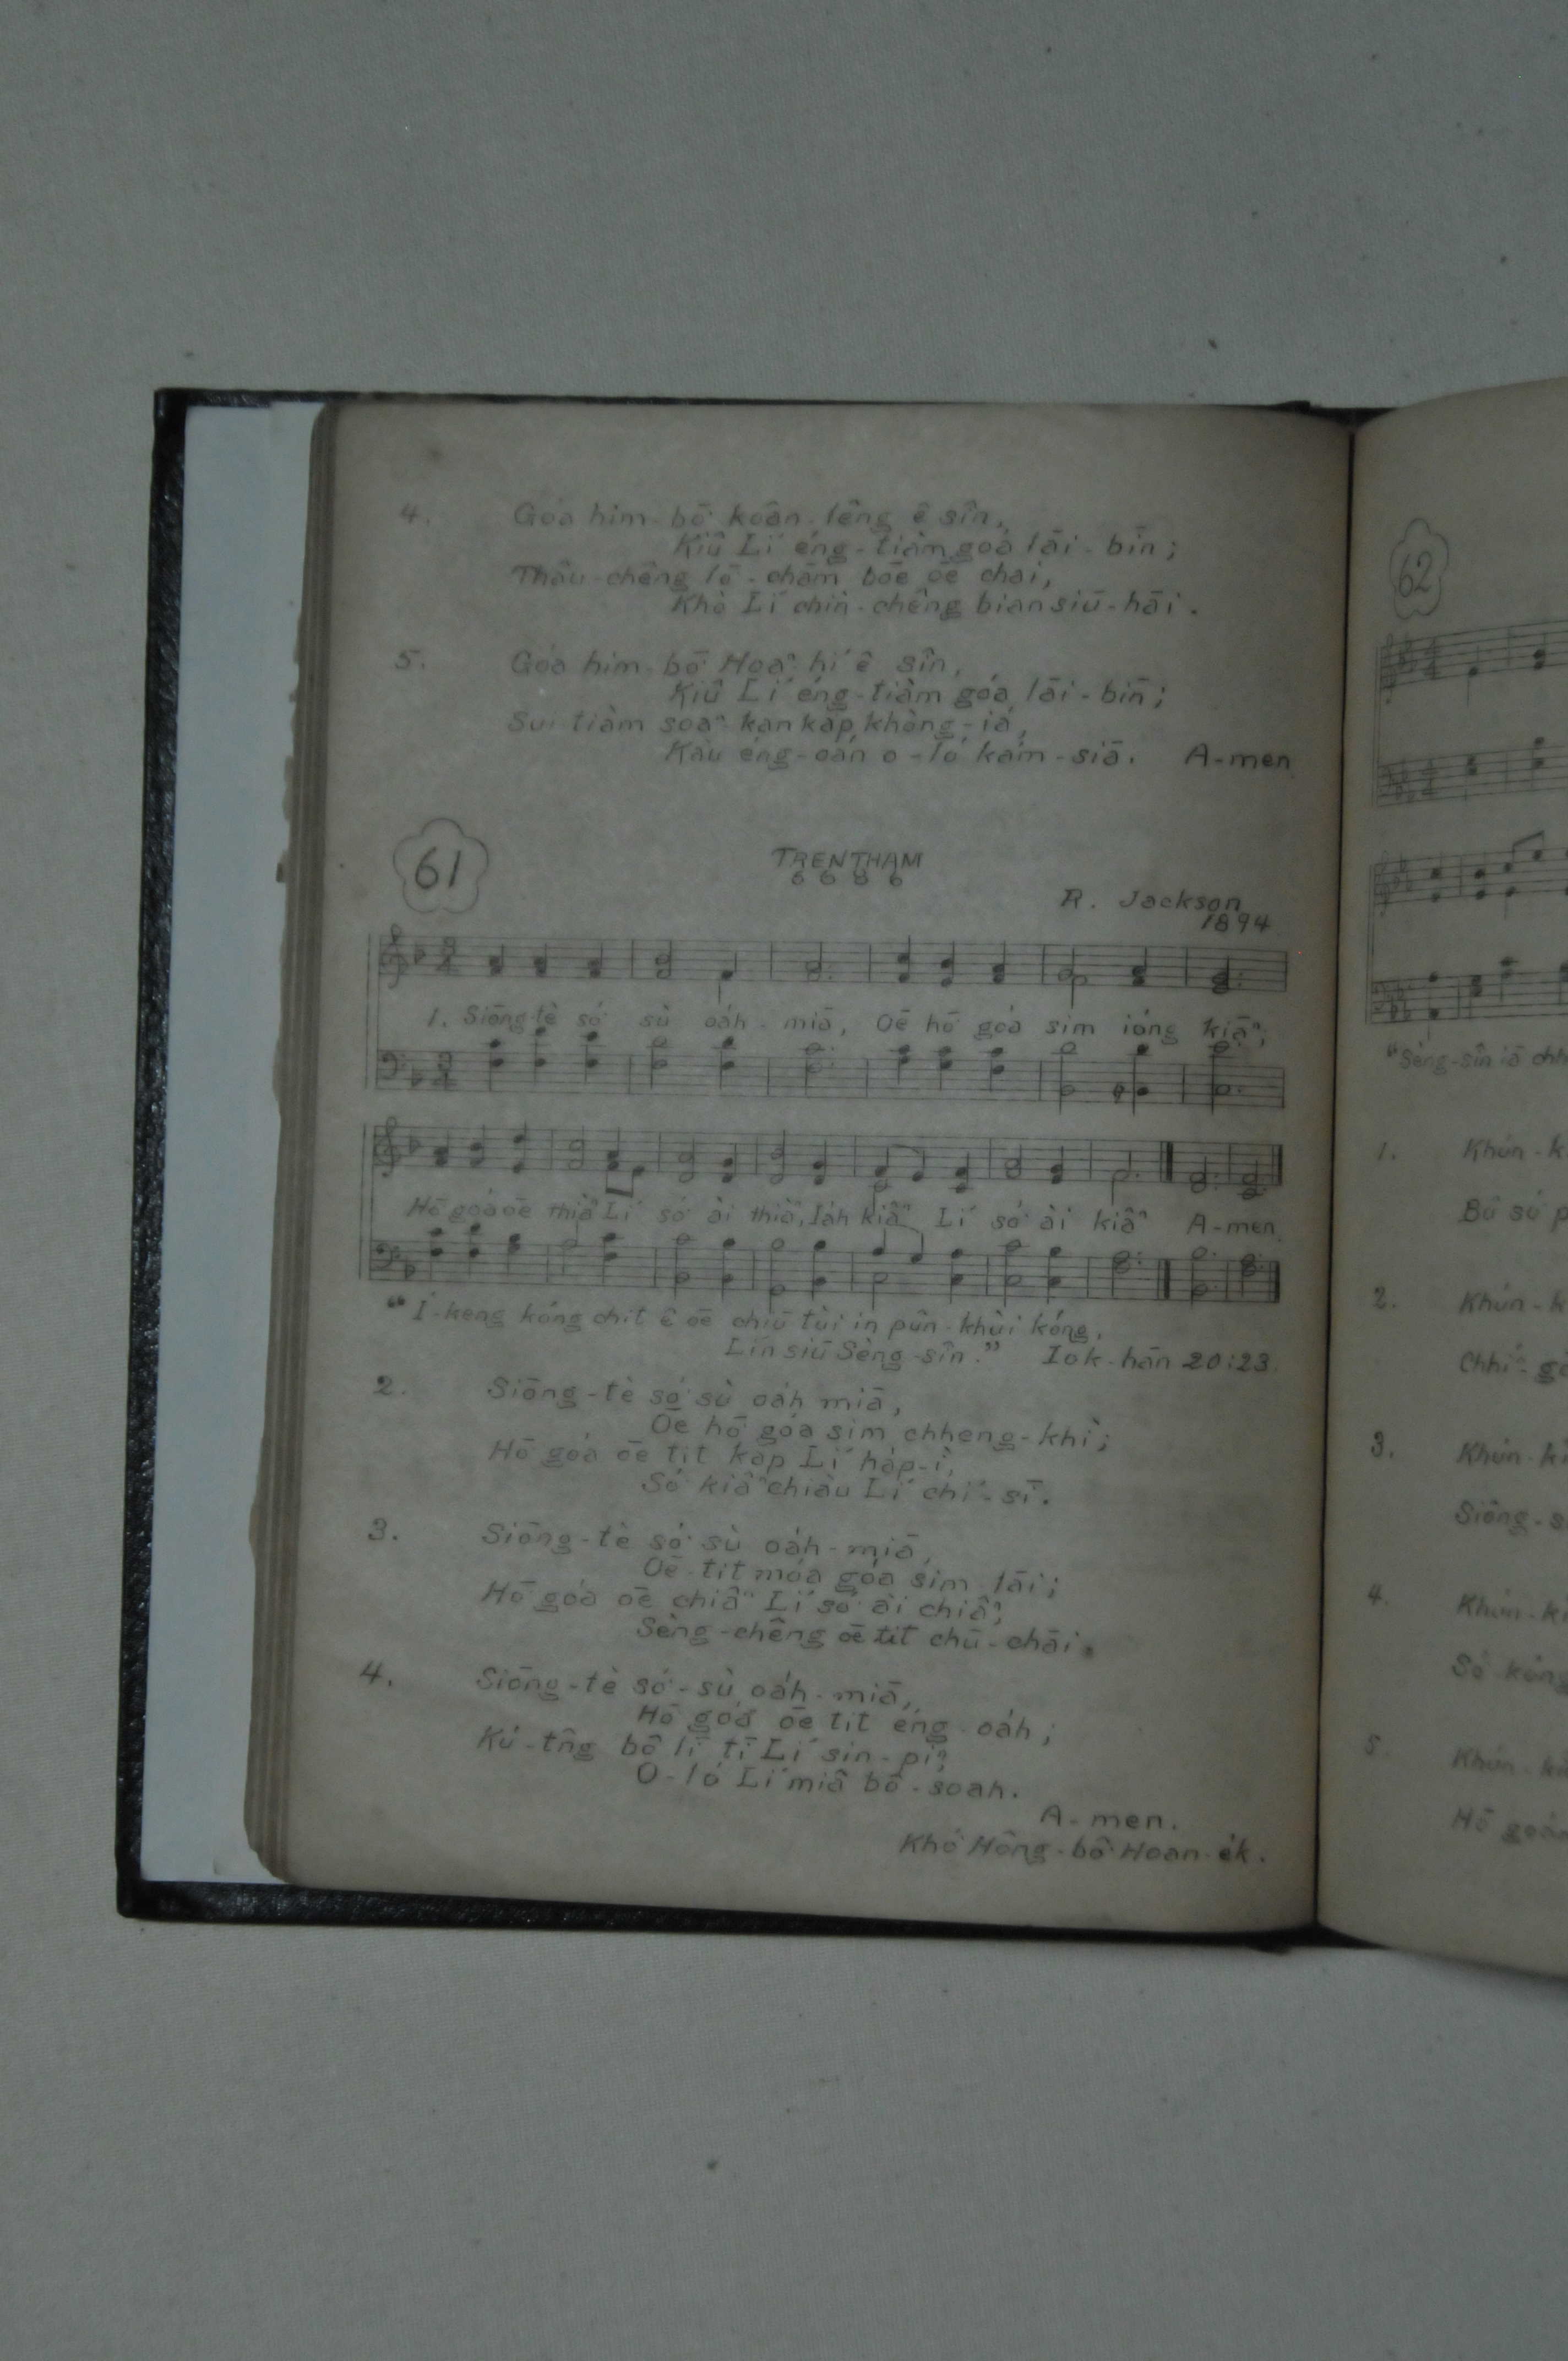 4. Góa him-bō͘ koân-lêng ê sîn,
Kiû Lí éng-tiàm goá lāi-bīn;
Thâu-chêng lō͘-chām bōe ōe chai,
Khò Lí chìn-chêng bián siū-hāi.
5. Góa him-bō͘ Hoaⁿ-hí ê sîn,
Kiû Lí éng-tiàm góa lāi-bīn;
Sui tiàm soaⁿ-kan kap khòng-iá,
Kàu éng-oán o-ló kám-siā. A-men.
61
TRENTHAM
6 6 8 6
R. Jackson
1894.
1. Siōng-tè só͘ sù oa̍h-miā, Ōe hō͘ góa sim ióng kiāⁿ;
Hō͘ góa ōe thiàⁿ Lí só͘ ài thiàⁿ, Ia̍h kiâⁿ Lí só͘ ài kiâⁿ A-men.
“Í-keng kóng chit ê ōe chiū tùi in pûn-khùi kóng,
Lín siū Sèng-sîn.” Iok-hān 20:23.
2. Siōng-tè só͘ sù oa̍h miā,
Ōe hō͘ góa sim chheng-khì;
Hō͘ góa ōe tit kap Lí ha̍p-ì,
Só͘ kiâⁿ chiàu Lí chí-sī.
3. Siōng-tè só͘ sù oa̍h-miā,
Ōe-tit móa góa sim lāi;
Hō͘ góa ōe chiâⁿ Lí só͘ ài chiâⁿ,
Sèng-chêng ōe tit chū-chāi.
4. Siōng-tè só͘-sù oa̍h-miā,
Hō͘ góa ōe tit éng-oa̍h;
Kú-tn̂g bô lī tī Lí sin-piⁿ,
O-ló Lí miâ bô-soah.
A-men.
Khó͘ Hông-bô͘ Hoan-e̍k.
62
“Sèng-sîn iā
1. Khún-k
Bû só͘
2. Khún-k
Chhi
3. Khún-ki
Siōng-s
4. Khún-ki
Só͘ kóng
5. Khún-ki
Hō͘ goán